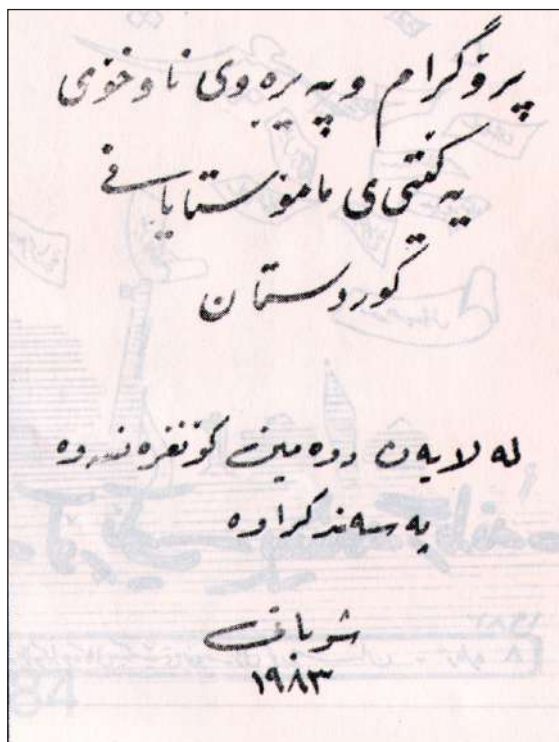 پرۆگرام و پەیڕەوی ناوخۆی
یەکێتی ی مامۆستایانی
کوردستان
لەلایەن دوەمین کۆنفرەنسەوە
پەسەندکراوە
شوباتی
١٩٨٣